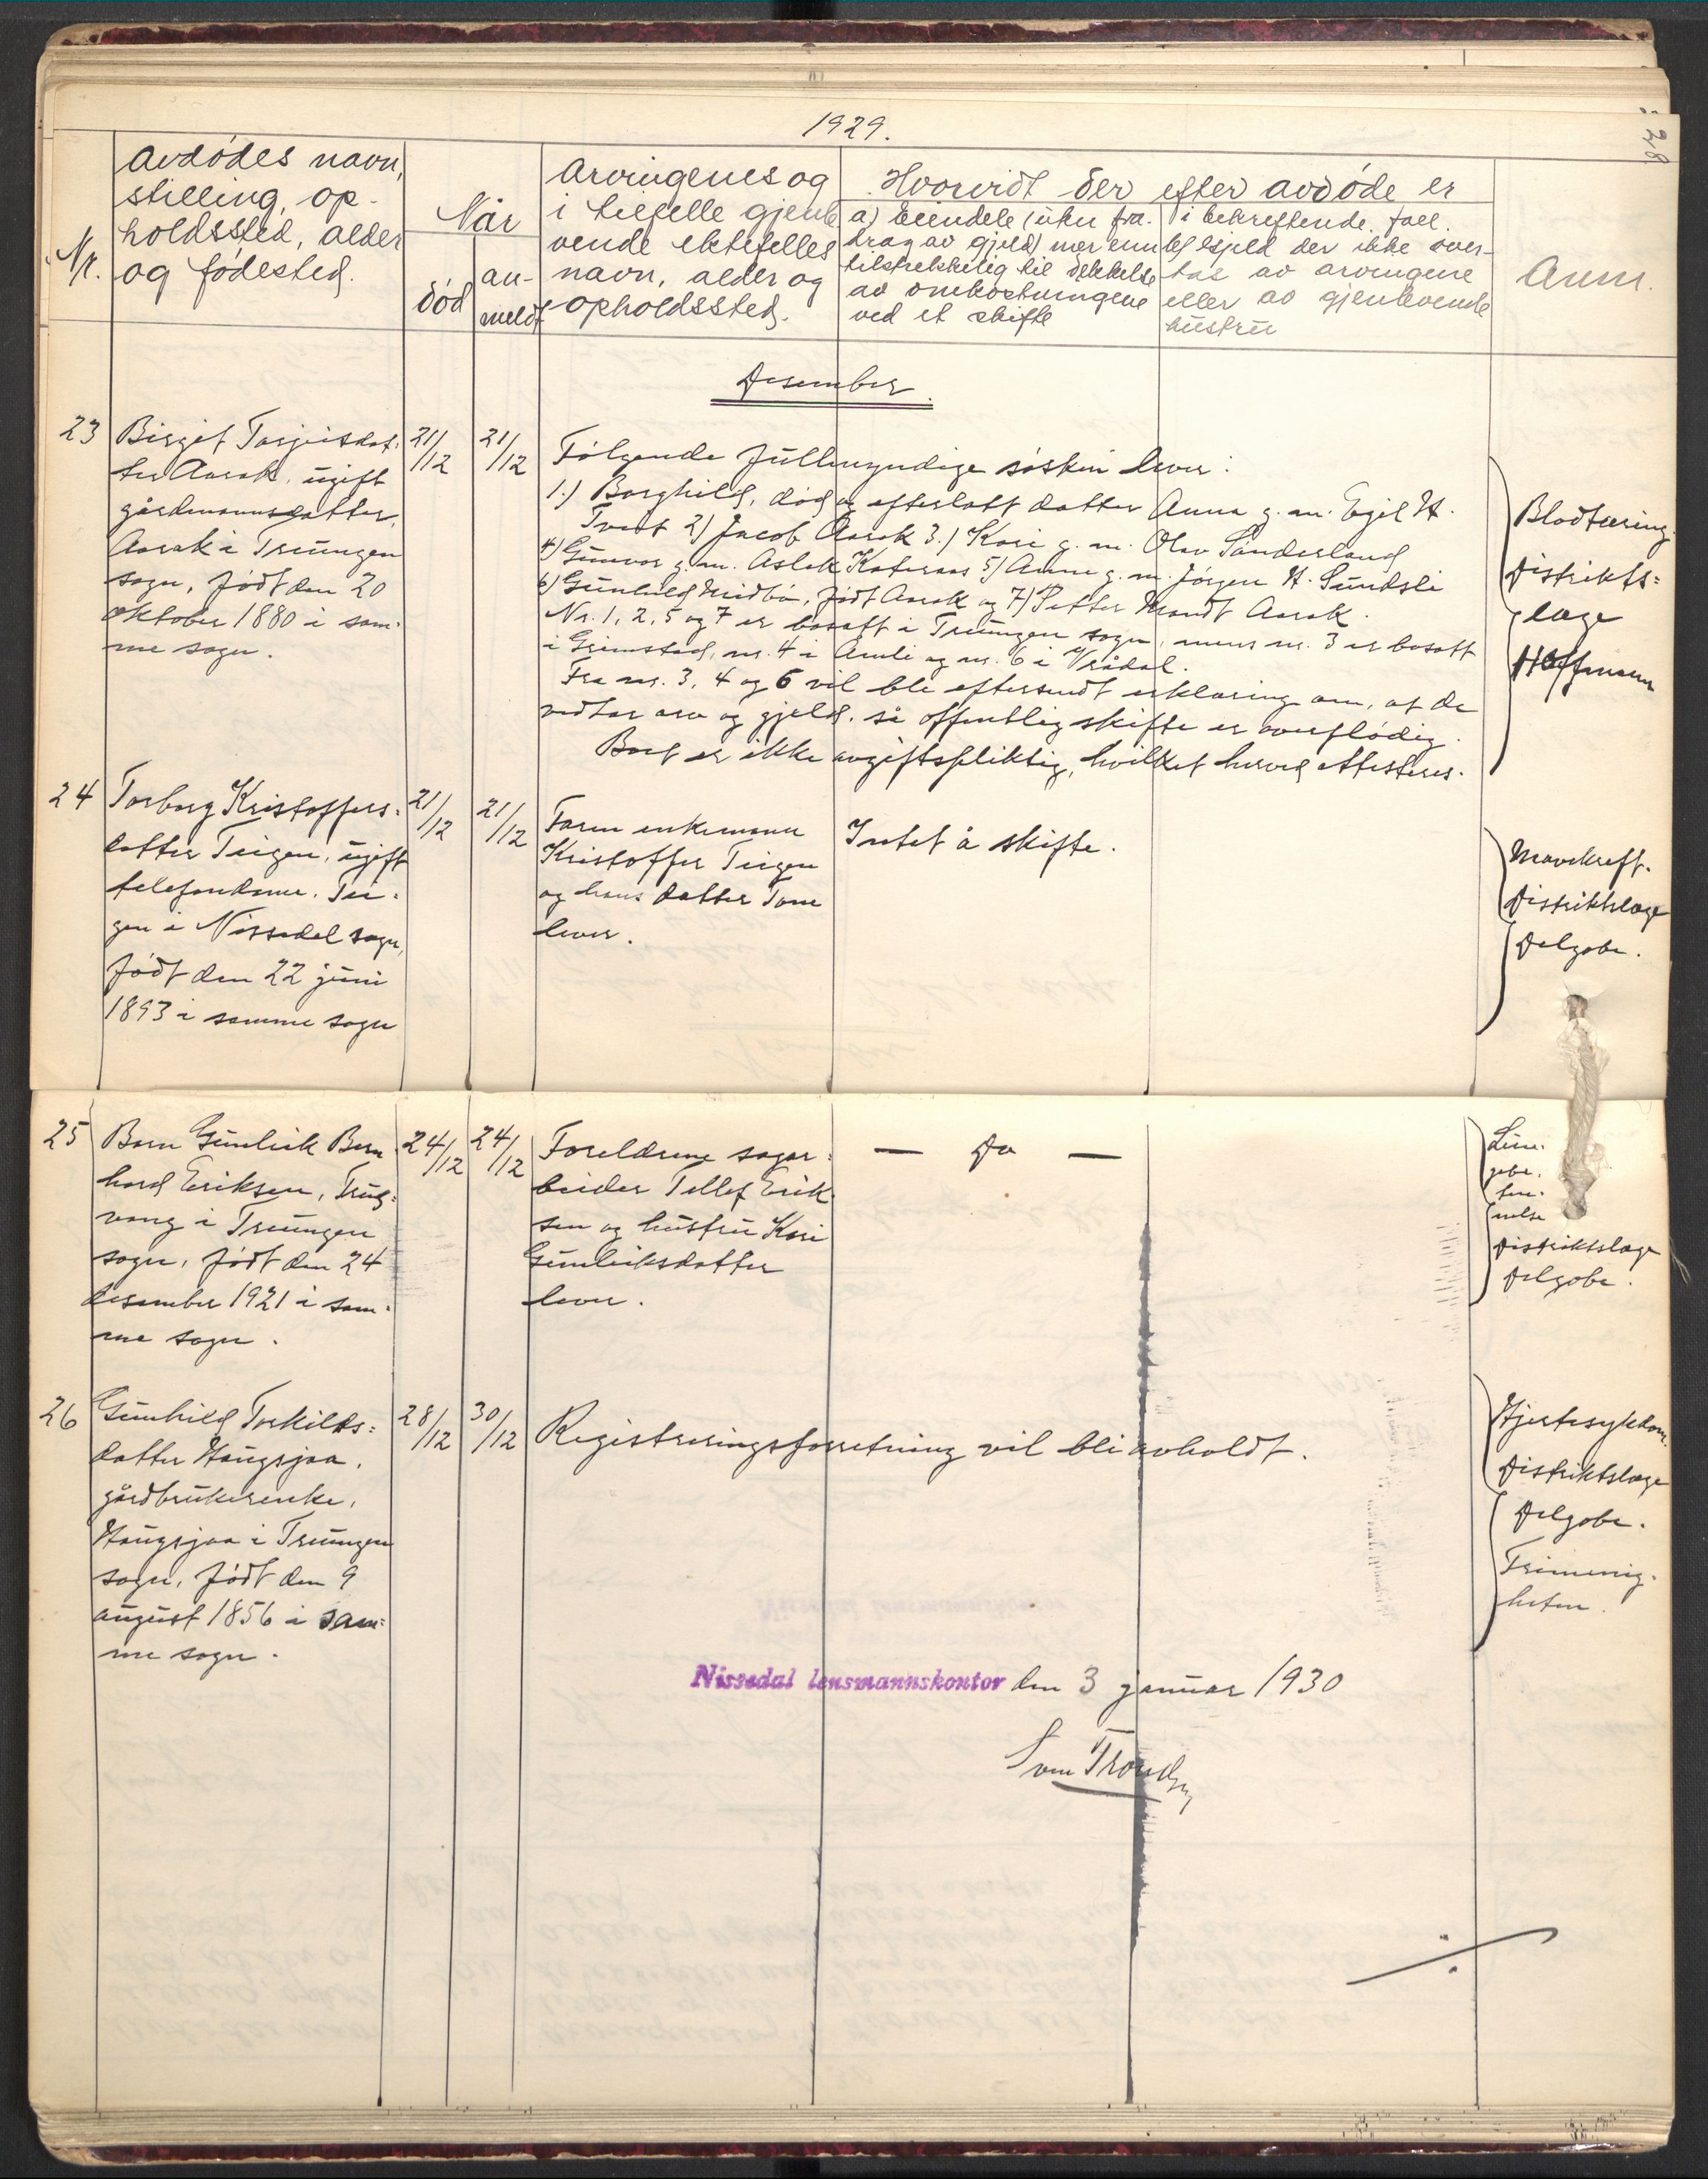 1929.
28
Nr.
Avdødes navn,
stilling, op-
holdssted, alder
og fødested.
Når
død
an-
meldt
Arvingenes og
i tilfelle gjenle
vende ektefelles
navn, alder og
opholdssted.
Hvorvidt der efter avdøde er
a) Eiendele (uten fra-
drag av gjeld) mer enn
tilstrekkelig til dekkelse
av omkostningene
ved et skifte
i bekreftende fall.
b) Gjeld der ikke over-
tas av arvingene
eller av gjenlevende
hustru
Anm.
Desember.
23
Birgit Torjeisdat-
ter Aarak, ugift
gårdmannsdatter,
Aarak i Treungen
sogn, født den 20
oktober 1880 i sam-
me sogn.
21/12
21/12
Følgende fullmyndige søsken lever:
1.) Borghild, død og efterlatt datter Anna g. m. Egil H.
Tveit 2) Jacob Aarak 3.) Kari g. m. Olav Sånderland
4) Gunvor g. m. Aslak Kateraas 5) Anne g. m. Jørgen H. Sundsli
6) Gunhild Midbø, født Aarak og 7) Petter Mandt Aarak.
Nr. 1, 2, 5 og 7 er bosatt i Treungen sogn, mens nr. 3 er bosatt
i Grimstad, nr. 4 i Amli og nr. 6 i Vrådal.
Fra nr. 3, 4 og 6 vil bli eftersendt erklæring om, at de
vedtar arv og gjeld, så offentlig skifte er overflødig.
Boet er ikke avgiftspliktig, hvilket herved attesteres.
Blodtæring
Distrikts=
læge
Hoffmann
24
Torborg Kristoffers=
datter Teigen, ugift
telefondame, Tei=
gen i Nissedal sogn,
født den 22 juni
1893 i samme sogn
21/12
21/12
Faren enkemann
Kristoffer Teigen
og hans datter Tone
lever.
Intet å skifte.
Mavekreft.
Distriktslæge
Felgobe.
25
Barn Gunleik Bern
hard Eriksen, Trug=
vang i Treungen
sogn, født den 24
desember 1921 i sam=
me sogn.
24/12
24/12
Foreldrene sagar=
beider Tellef Erik
sen og hustru Kari
Gunleiksdatter
lever.
— Do —
Distriktslæge
Felgobe.
26
Gunhild Torkilds=
datter Haugsjaa,
gårdbrukerenke,
Haugsjaa i Treungen
sogn, født den 9
august 1856 i sam=
me sogn.
28/12
30/12
Registreringsforretning vil bli avholdt.
Hjertesykdom.
Distriktslæge
Felgobe.
Nissedal lensmannskontor den 3 januar 1930